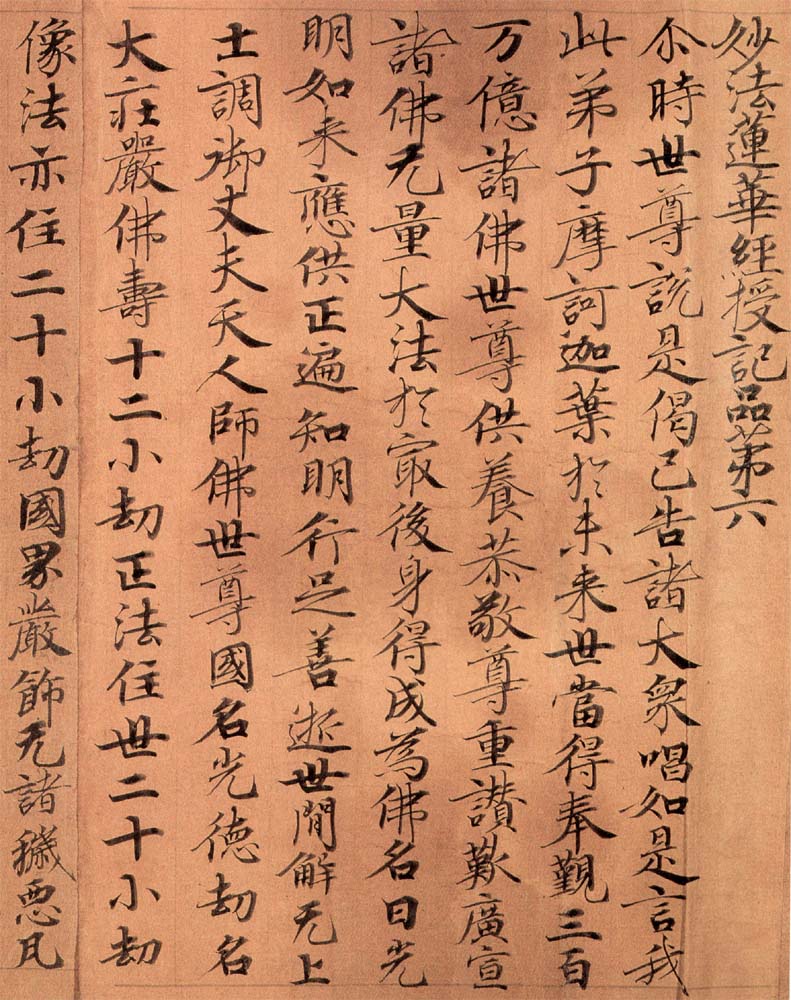 妙法蓮華經授記品第六
尒時世尊說是偈已告諸大衆唱如是言我
此弟子摩訶迦葉於未来世當得奉覲三百
万億諸佛世尊供養恭敬尊重讃歎廣宣
諸佛无量大法於㝡後身得成為佛名曰光
明如来應供正遍知明行足善逝世間解无上
士調御丈夫天人師佛世尊國名光徳劫名
大莊嚴佛壽十二小劫正法住世二十小劫
像法亦住二十小劫國界嚴飾无諸穢悪凡